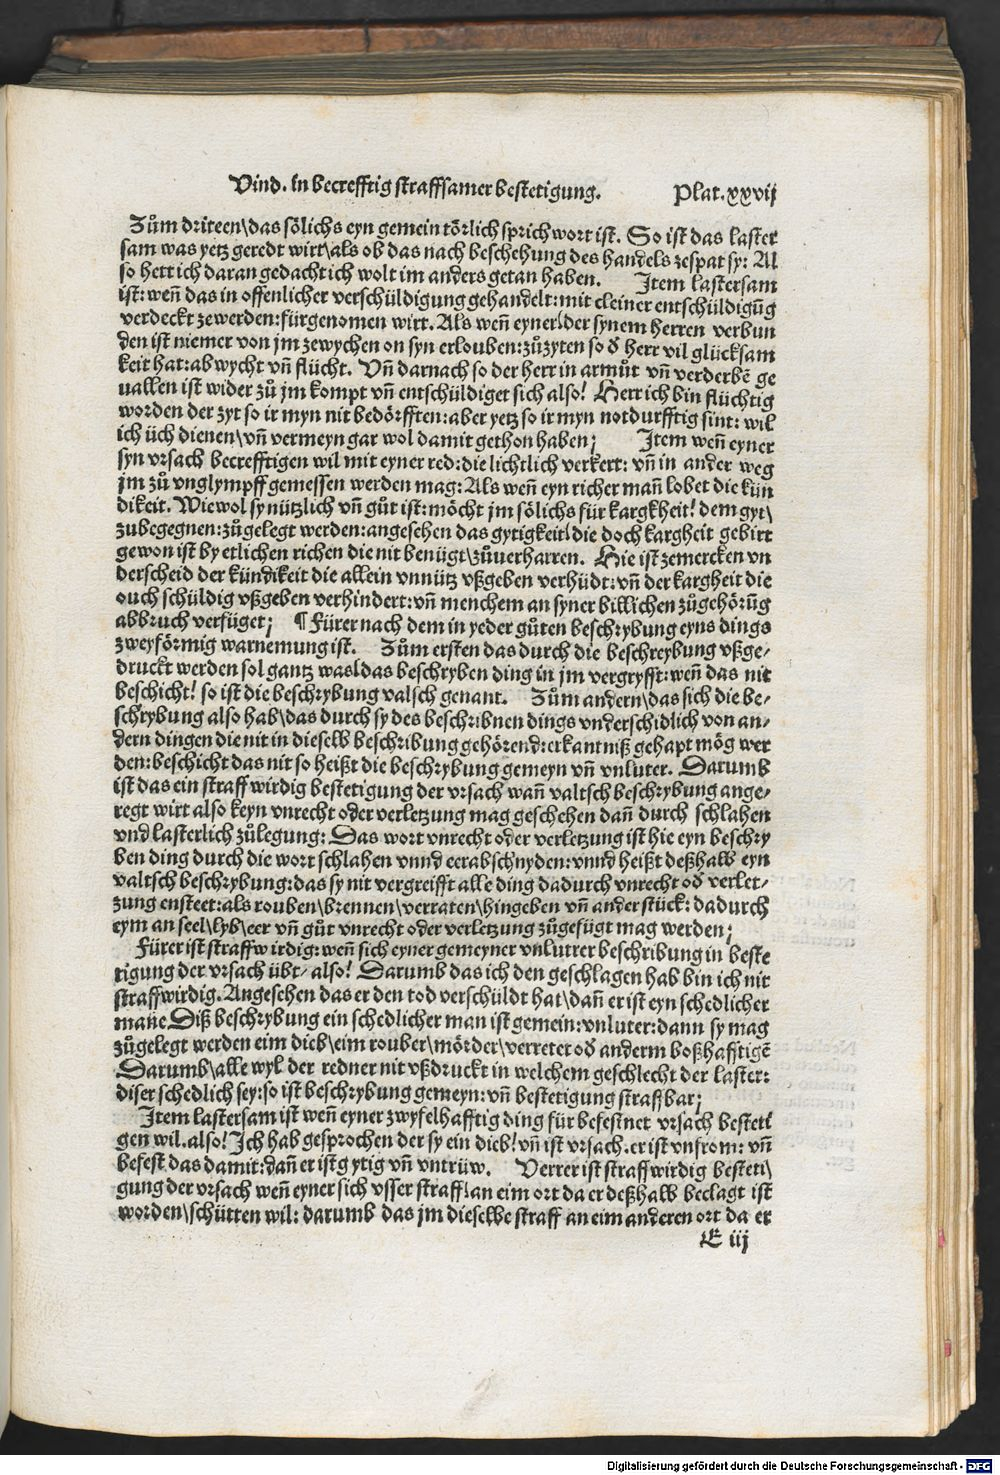 Vind. in becrefftig straffsamer bestetigung. Plat. xxvij
Zům driteen\das sölichs eyn gemein törlich sprichwort ist. So ist das laster
sam was yetz geredt wirt\als ob das nach beschehung des handels zespat sy: Al
so hett ich daran gedacht ich wolt im anders getan haben. Item lastersam
ist: wen̄ das in offenlicher verschüldigung gehandelt: mit cleiner entschüldigūg
verdeckt zewerden: fürgenomen wirt. Als wen̄ eyner\der synem herren verbun
den ist niemer von jm zewychen on syn erlouben: zůzyten so d̄ herr vil glücksam
keit hat: ab wycht vn̄ flücht. Vn̄ darnach so der herr in armůt vn̄ verderbē ge
uallen ist wider zů jm kompt vn̄ entschüldiget sich also! Herr ich bin flüchtig
worden der zyt so ir myn nit bedörfften: aber yetz so ir myn notdurfftig sint: wil
ich üch dienen\vn̄ vermeyn gar wol damit gethon haben; Item wen̄ eyner
syn vrsach becrefftigen wil mit eyner red: die lichtlich verkert: vn̄ in ander weg
jm zů vnglympff gemessen werden mag: Als wen̄ eyn richer man̄ lobet die kün
dikeit. Wiewol sy nützlich vn̄ gůt ist: möcht jm sölichs für kargkheit! dem gyt\
zubegegnen: zůgelegt werden: angesehen das gytigkeit\die doch kargheit gebirt
gewon ist by etlichen richen die nit benügt\zůuerharren. Hie ist zemercken vn
derscheid der kündikeit die allein vnnütz vßgeben verhüdt: vn̄ der kargheit die
ouch schüldig vßgeben verhindert: vn̄ menchem an syner billichen zůgehörūg
abbruch verfüget; ¶ Fürer nach dem in yeder gůten beschrybung eyns dings
zweyförmig warnemung ist. Zům ersten das durch die beschreybung vßge⸗
druckt werden sol gantz was\das beschryben ding in jm vergryfft: wen̄ das nit
beschicht! so ist die beschrybung valsch genant. Zům andern\das sich die be⸗
schrybung also hab\das durch sy des beschribnen dings vnderschidlich von an⸗
dern dingen die nit in dieselb beschribung gehörend: erkantniß gehapt mög wer
den: beschicht das nit so heißt die beschrybung gemeyn vn̄ vnluter. Darumb
ist das ein straff wirdig bestetigung der vrsach wan̄ valtsch beschrybung ange⸗
regt wirt also keyn vnrecht oder verletzung mag geschehen dan̄ durch schlahen
vnd lasterlich zůlegung: Das wort vnrecht oder verletzung ist hie eyn beschry
ben ding durch die wort schlahen vnnd eerabschnyden: vnnd heißt deßhalb eyn
valtsch beschrybung: das sy nit vergreifft alle ding dadurch vnrecht od̄ verlet⸗
zung ensteet: als rouben\brennen\verraten\hingeben vn̄ ander stück: dadurch
eym an seel\lyb\eer vn̄ gůt vnrecht oder verletzung zůgefügt mag werden;
Fürer ist straffwirdig: wen̄ sich eyner gemeyner vnlutrer beschribung in beste
tigung der vrsach übt⸗ also! Darumb das ich den geschlagen hab bin ich nit
straffwirdig. Angesehen das er den tod verschüldt hat\dan̄ er ist eyn schedlicher
mane Diß beschrybung ein schedlicher man ist gemein: vnluter: dann sy mag
zůgelegt werden eim dieb\eim rouber\mörder\verreter od̄ anderm boßhafftigē
Darumb\alle wyl der redner nit vßdruckt in welchem geschlecht der laster:
diser schedlich sey: so ist beschrybung gemeyn: vn̄ bestetigung straffbar;
Item lastersam ist wen̄ eyner zwyfelhafftig ding für befestnet vrsach besteti
gen wil. also! Ich hab gesprochen der sy ein dieb! vn̄ ist vrsach. er ist vnfrom: vn̄
befest das damit: dan̄ er ist gytig vn̄ vntrüw. Verrer ist straffwirdig besteti\
gung der vrsach wen̄ eyner sich vsser straff\an eim ort da er deßhalb beclagt ist
worden\schütten wil: darumb das jm dieselbe straff an eim anderen ort da er
E iij
Digitalisierung gefördert durch die Deutsche Forschungsgemeinschaft - DFG